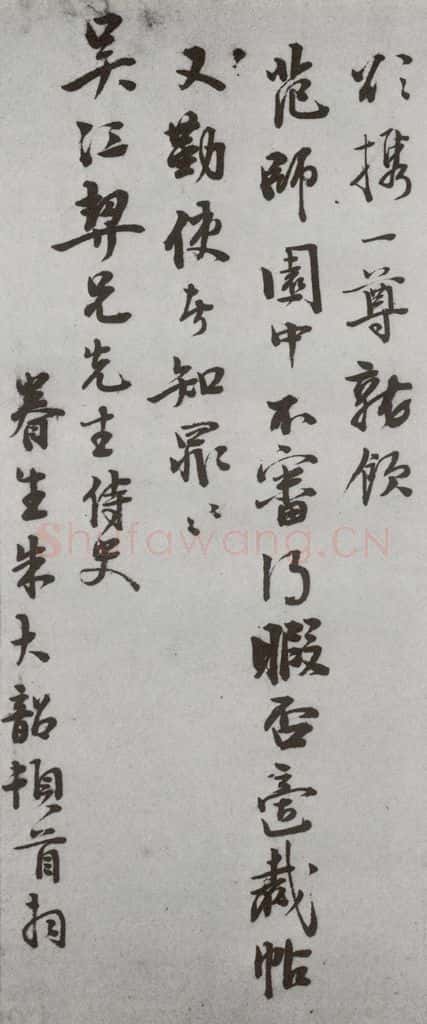 欲携一尊就饮
范師園中不審得暇否邊裁帖
又勤使者知罪〻
吴江契兄先生侍史
眷生朱大韶頓首拜
Shufawang.CN